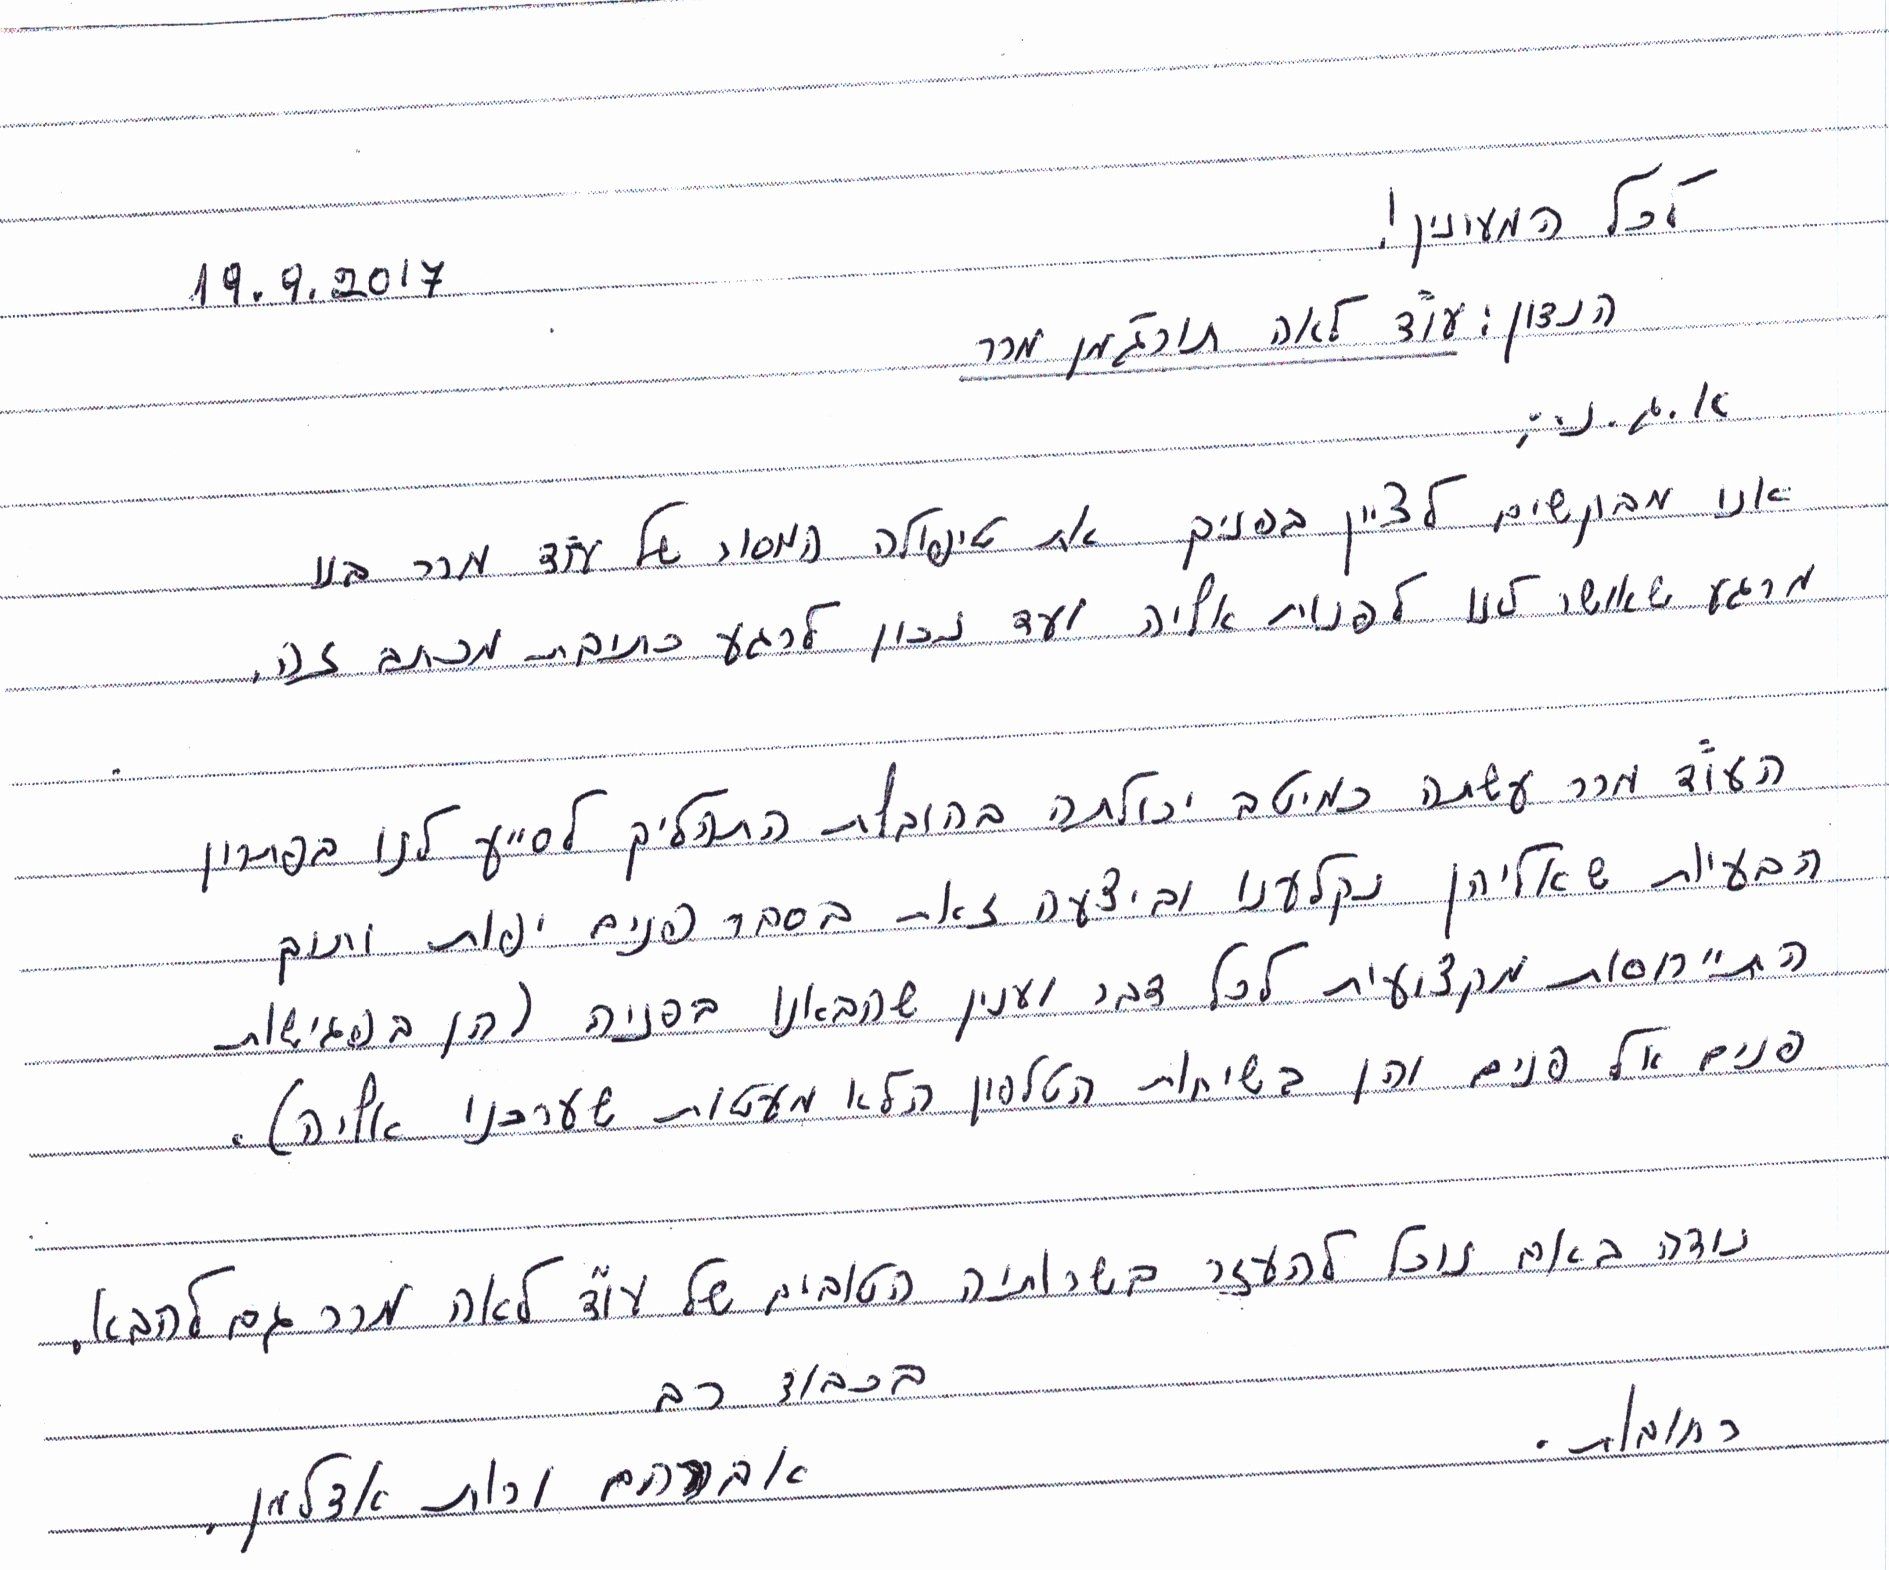 לכל המעונין!
19.9.2017
הנדון: עו"ד לאה תורג'מן מרר
א.ג.נ.,
אנו מבוקשים לציין בפניך את טיפולה המסור של עו"ד מרר בנו
מרגע שאושר לנו לפנות אליה ועד נכון לרגע כתיבת מכתב זה.
העו"ד מרר עשתה כמיטב יכולתה בהובלת התהליך לסייע לנו בפתרון
הבעיות שאליהן נקלענו וביצעה זאת בסבר פנים יפות ותוך
התייחסות מקצועית לכל דבר וענין שהבאנו בפניה (הן בפגישות
פנים אל פנים והן בשיחות הטלפון הלא מעטות שערכנו אליה).
נודה באם נוכל להעזר בשרותיה הטובים של עו"ד לאה מרר גם להבא.
בכבוד רב
רחובות.
אברהם ורות אדלמן.